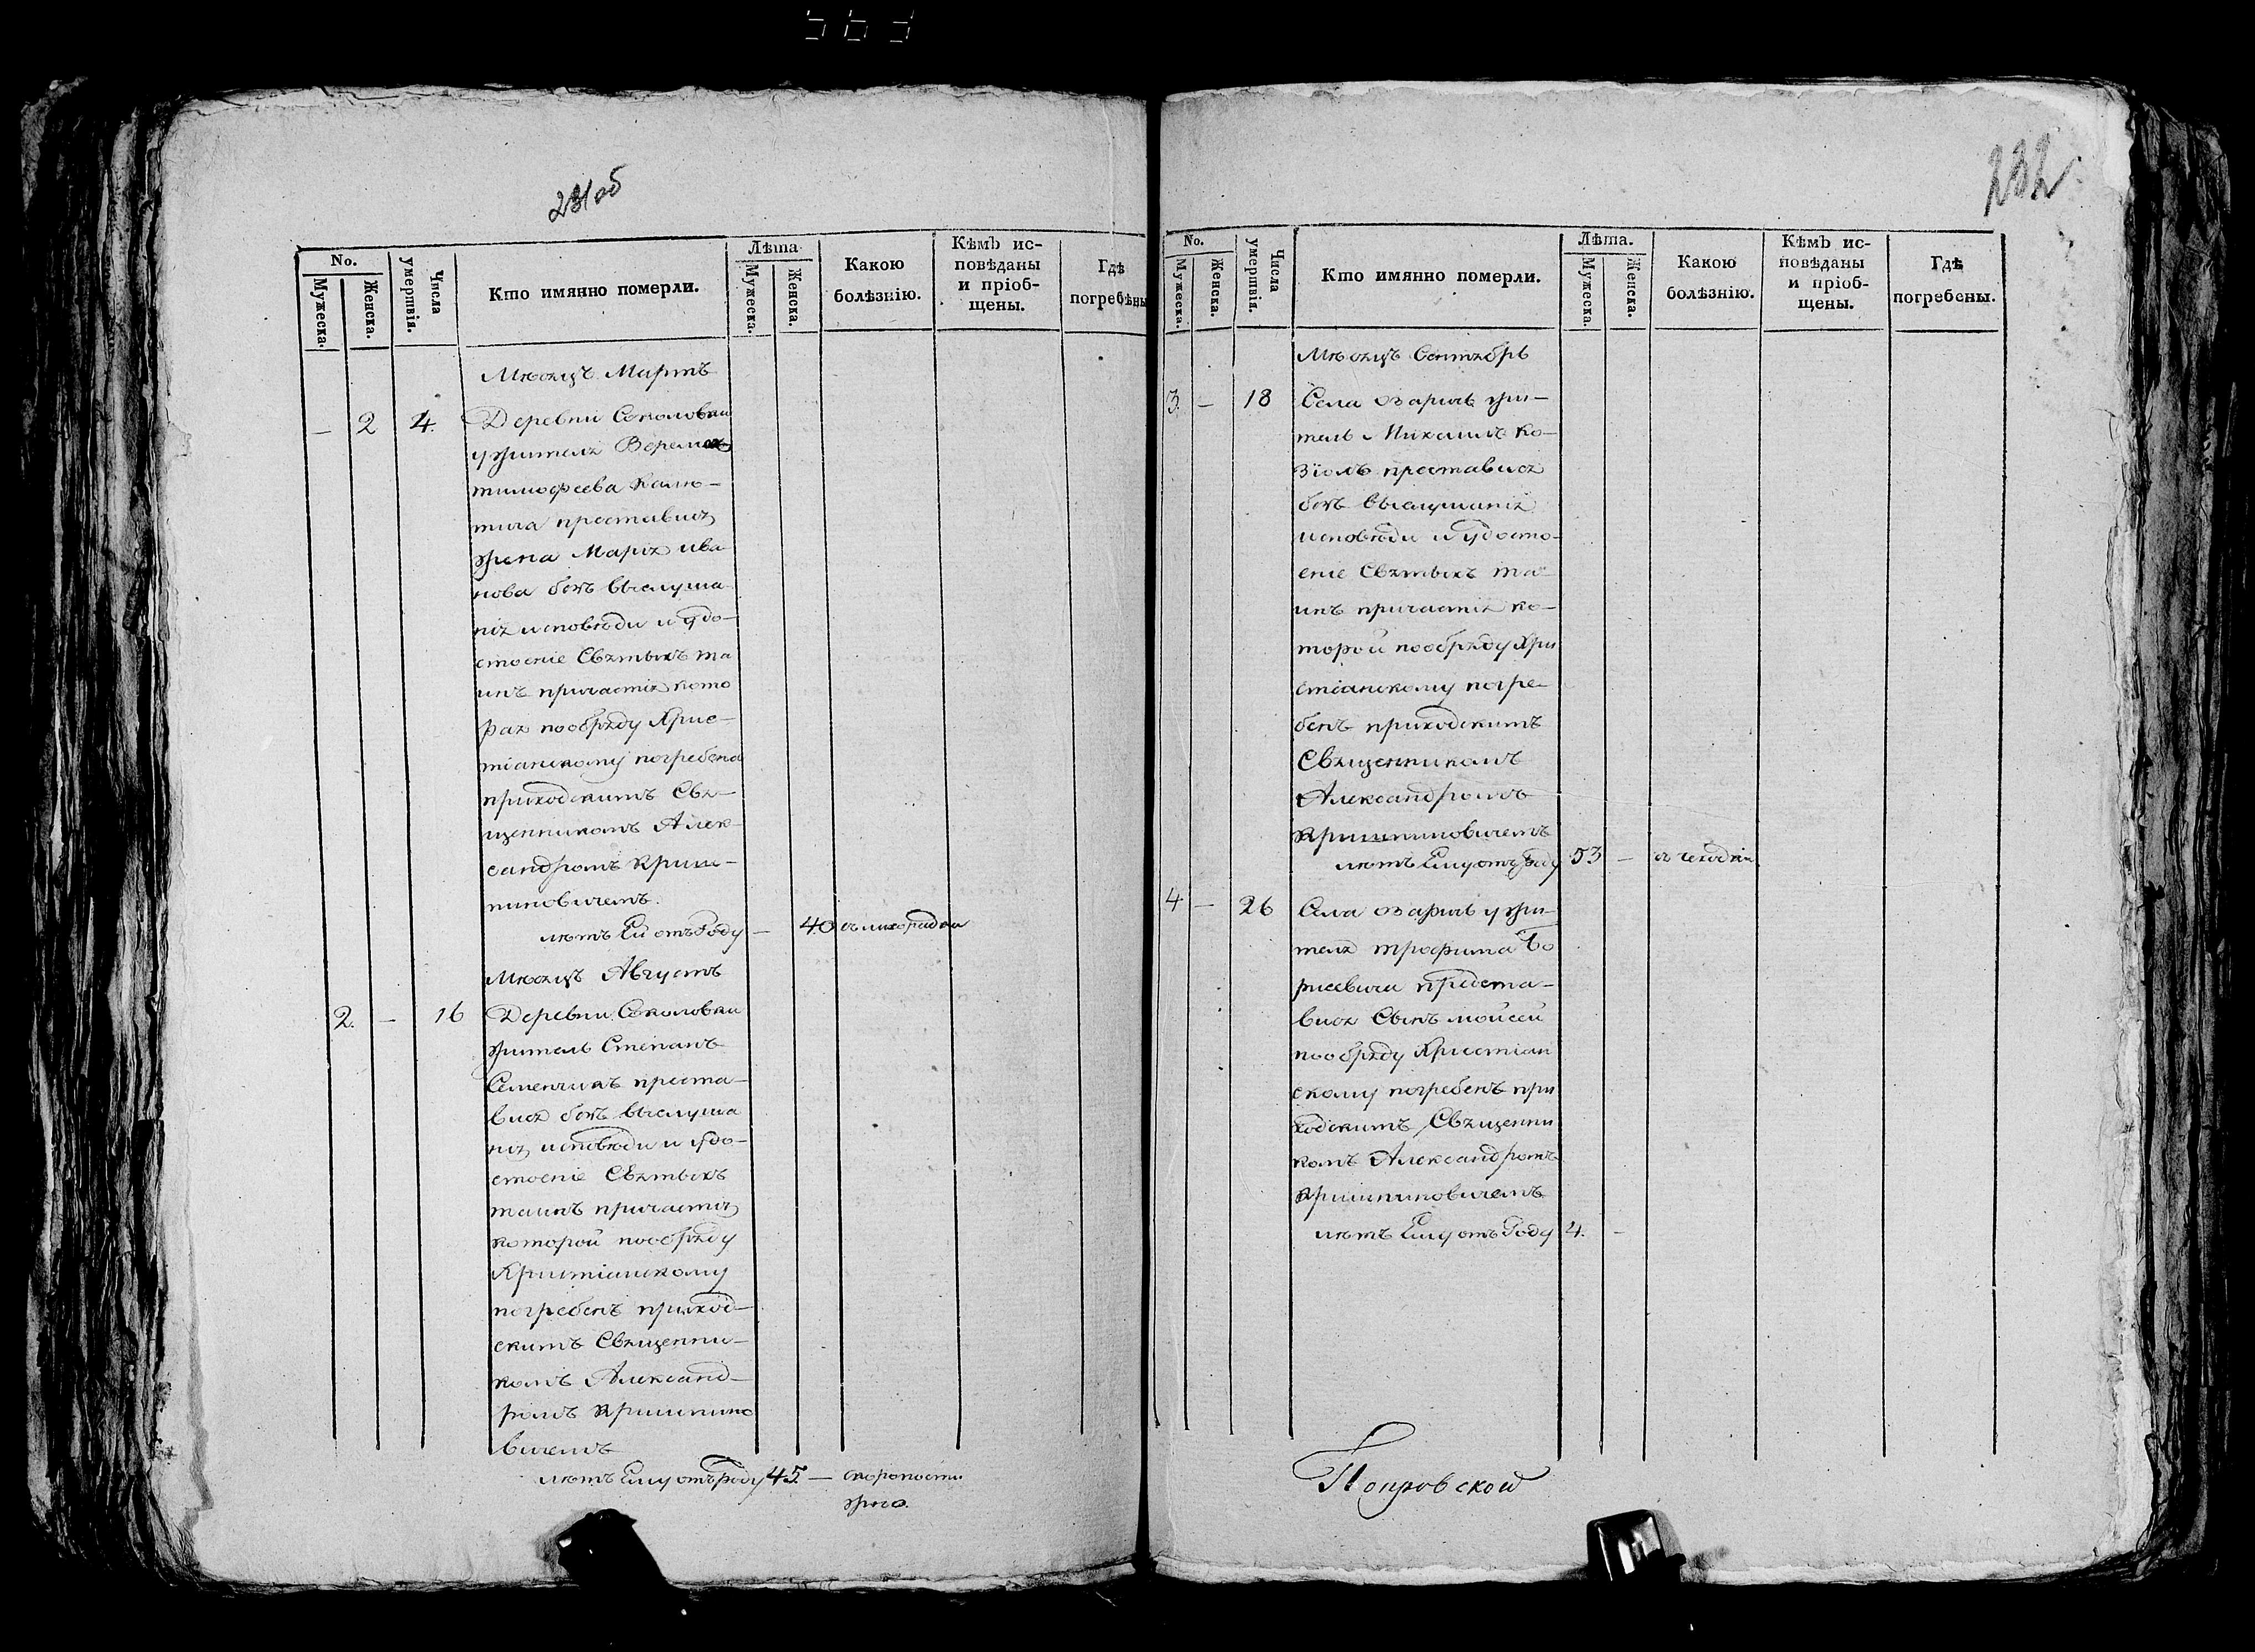 231 об
No.
Мужеска.
Женска.
Числа умертвія.
Кто имянно померли.
Лѣта
Мужеска.
Женска.
Какою болѣзнію.
Кѣмъ исповѣданы и пріобщены.
Гдѣ погребены
Мѣсяцъ Мартъ
— 2 4. Деревни Соколовки
у жителя
тимофеева
преставись
жена Марія ива
нова безъ выслуша
нія исповѣди и удо—
стоеніе Святыхъ та
инъ причастія кото
рая по обряду Хрис—
тіанскому погребена
приходскимъ Свя—
щенникомъ Алек—
сандромъ Криш—
пиновичемъ.
лѣтъ Ей отъ Роду — 40 съ лихорадки
Мѣсяцъ Августъ
2. — 16 Деревни Соколовки
житель Степанъ
Семенчикъ преста—
вися безъ выслуша
нія исповѣди и удо—
стоеніе Святыхъ
таинъ причастія
которой по обряду
Христіанскому
погребенъ приход—
скимъ Священни—
комъ Александ—
ромъ Кришпино
вичемъ
лѣтъ Ему отъ роду 45. — скоропости
жно.
232
No.
Мужеска.
Женска.
Числа умертвія.
Кто имянно померли.
Лѣта.
Мужеска.
Женска.
Какою болѣзнію.
Кѣмъ исповѣданы и пріобщены.
Гдѣ погребены.
Мѣсяцъ Сентябрь
3. — 18 Села озаричь жи—
тель Михаилъ Ко—
зіолъ преставися
безъ выслушанія
исповѣди и удосто—
еніе Святыхъ та—
инъ причастія ко—
торой по обряду Хри
стіанскому погре—
бенъ приходскимъ
Священникомъ
Александромъ
Кришпиновичемъ
лѣтъ Ему отъ роду 53 —
4 — 26 Села озаричь у жи—
теля трофима Бо
рисевича предста—
вися Сынъ мойсей
по обряду Христіан
скому погребенъ при
ходскимъ Священни
комъ Александромъ
Кришпиновичемъ
лѣтъ Ему отъ Роду 4. —